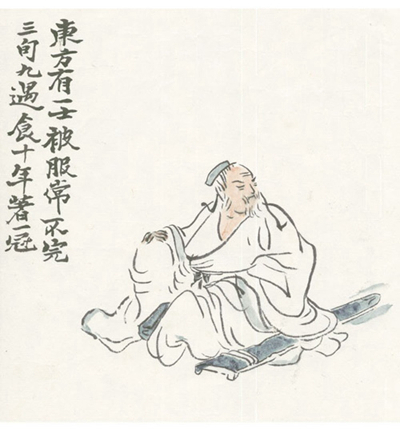 東方有一士被服常不完
三旬九遇食十年著一冠